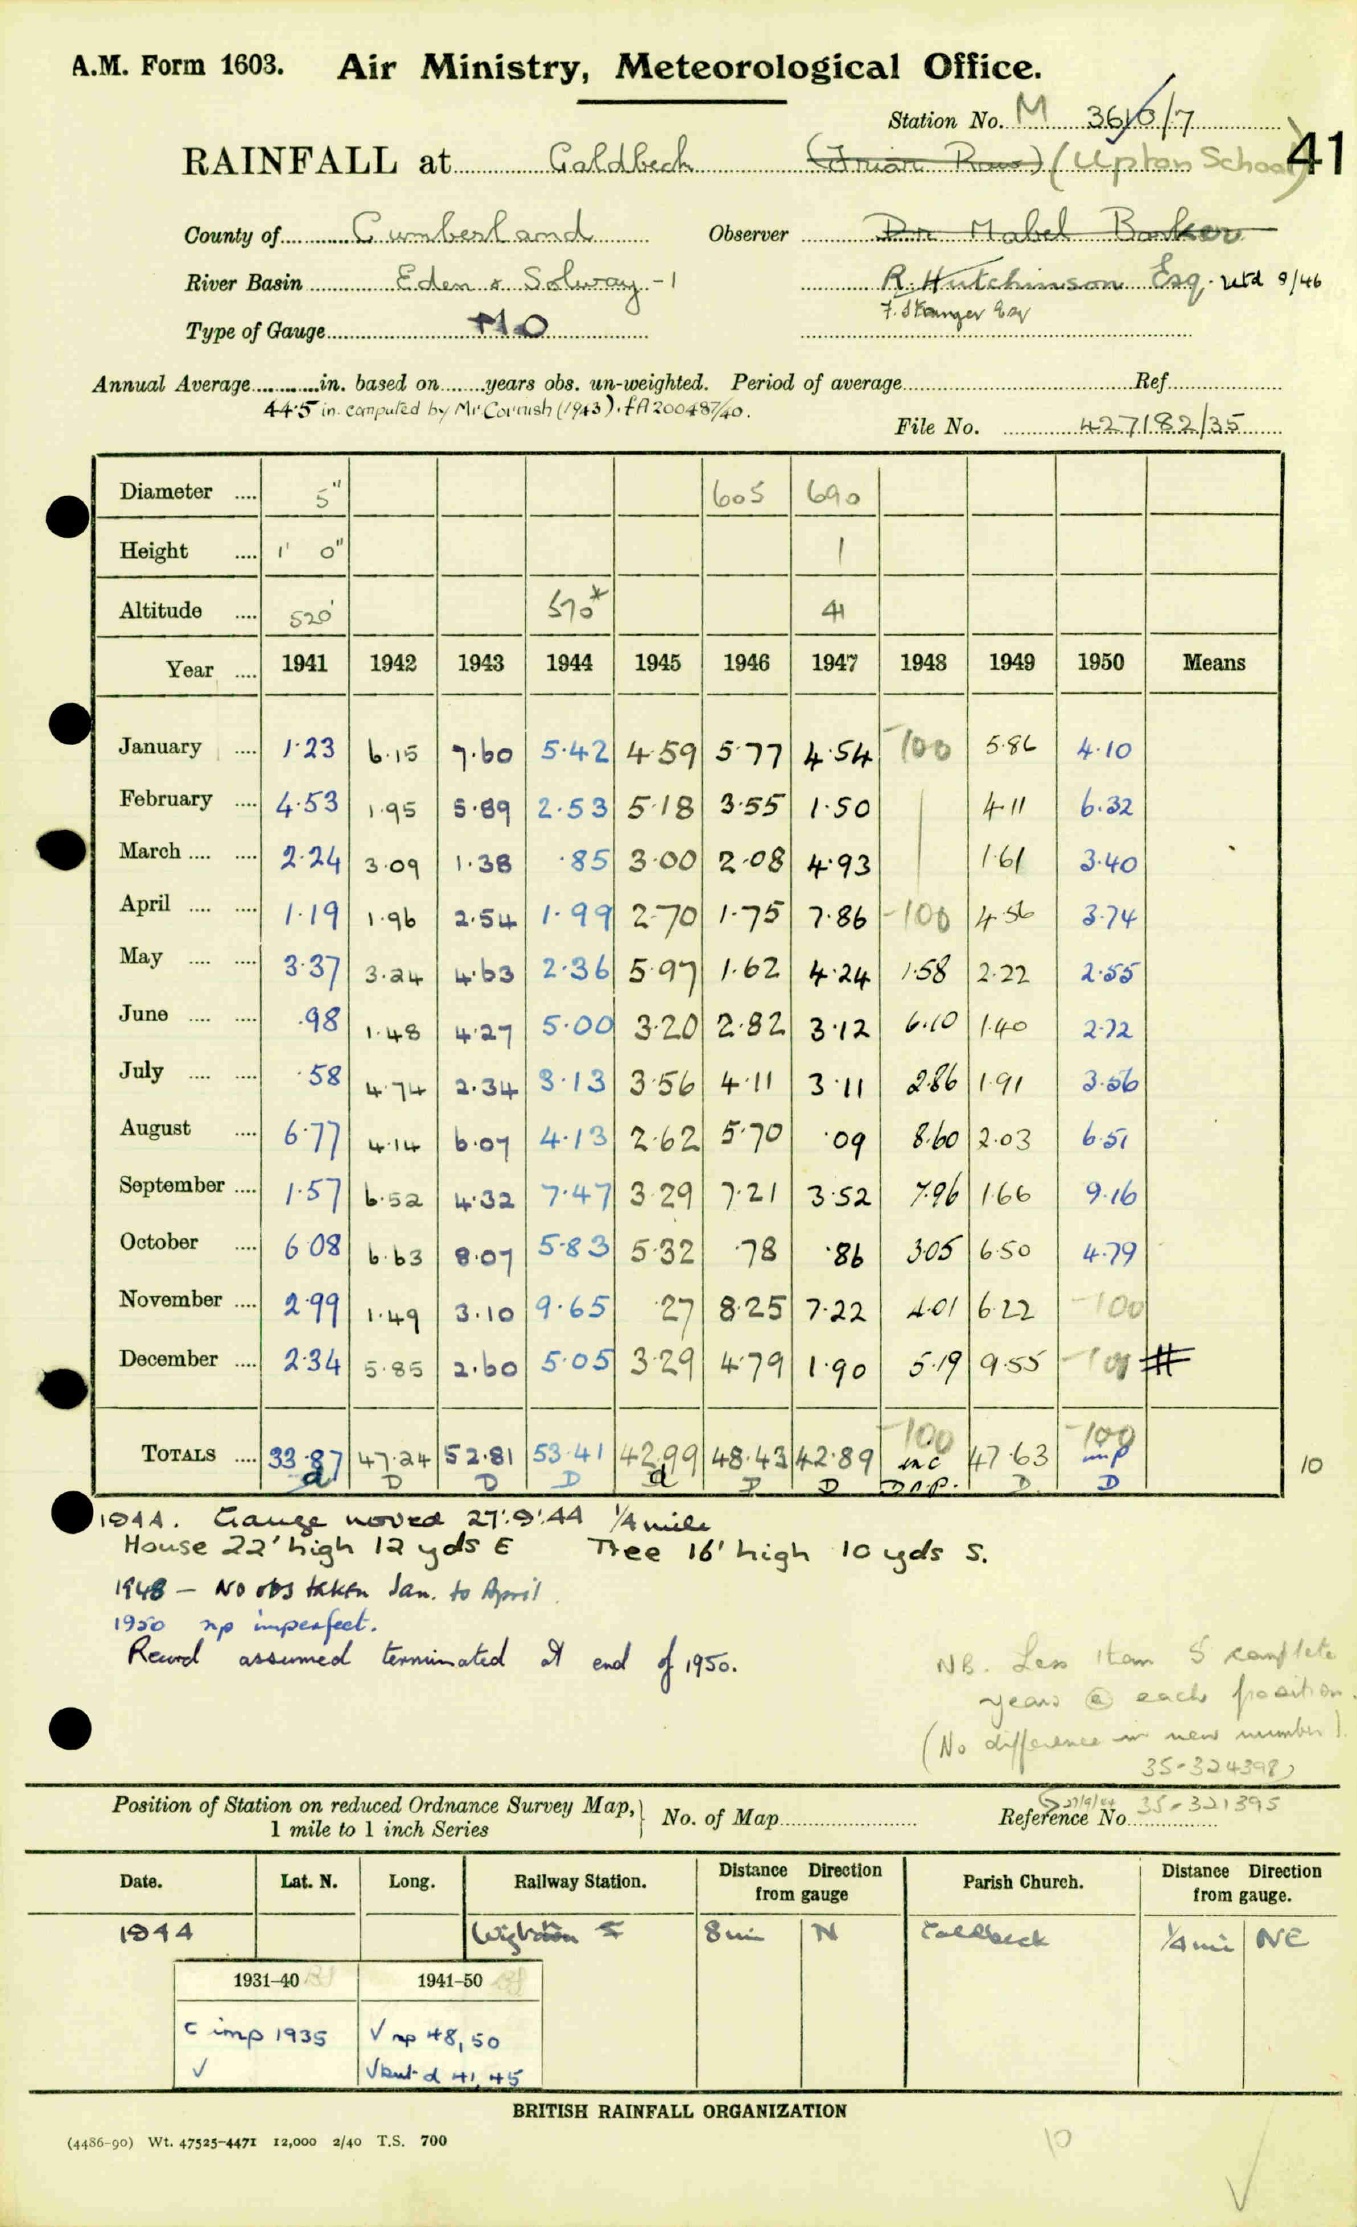 A.M. Form 1603. Air Ministry, Meteorological Office.
Station No. M 3610/7
RAINFALL at Caldbeck (Friar Row) (Upton School) 41
County of Cumberland Observer Dr Mabel Barker
River Basin Eden & Solway -1 R. Hutchinson Esq. 8/46
Type of Gauge MO F. Stranger Esq
Annual Average in. based on years obs. un-weighted. Period of average Ref
44.5 in. computed by Mr Cornish (1943). fA200487/40.
File No. 427182/35
Diameter 5" 605 690
Height 1' 0" 1
Altitude 520' 570* 41
Year 1941 1942 1943 1944 1945 1946 1947 1948 1949 1950 Means
January 1.23 6.15 7.60 5.42 4.59 5.77 4.54 -100 5.86 4.10
February 4.53 1.95 5.89 2.53 5.18 3.55 1.50 4.11 6.32
March 2.24 3.09 1.38 .85 3.00 2.08 4.93 1.61 3.40
April 1.19 1.96 2.54 1.99 2.70 1.75 7.86 -100 4.56 3.74
May 3.37 3.24 4.63 2.36 5.97 1.62 4.24 1.58 2.22 2.55
June .98 1.48 4.27 5.00 3.20 2.82 3.12 6.10 1.40 2.72
July .58 4.74 2.34 3.13 3.56 4.11 3.11 2.86 1.91 3.56
August 6.77 4.14 6.07 4.13 2.62 5.70 .09 8.60 2.03 6.51
September 1.57 6.52 4.32 7.47 3.29 7.21 3.52 7.96 1.66 9.16
October 6.08 6.63 8.07 5.83 5.32 .78 .86 3.05 6.50 4.79
November 2.99 1.49 3.10 9.65 .27 8.25 7.22 4.01 6.22 -100
December 2.34 5.85 2.60 5.05 3.29 4.79 1.90 5.19 9.55 -100 #
-100 -100
TOTALS 33.87 47.24 52.81 53.41 42.99 48.43 42.89 inc 47.63 imp 10
d D D D d D D D n.p. D D
1944. Gauge moved 27.9.44 1/4 mile
House 22' high 12 yds E Tree 16' high 10 yds S.
1948 – No obs taken Jan. to April.
1950 np imperfect.
Record assumed terminated at end of 1950.
NB. Less than 5 complete
years @ each position.
(No difference in new number).
35-324398
Position of Station on reduced Ordnance Survey Map, 1 mile to 1 inch Series No. of Map Reference No. 27/9/44 35-321395
Date. Lat. N. Long. Railway Station. Distance Direction from gauge Parish Church. Distance Direction from gauge.
1944 Wigton 8 mi N Caldbeck 1/4 mi NE
1931-40 1941-50
c imp 1935 √ np 48, 50
√ √ but d 41, 45
BRITISH RAINFALL ORGANIZATION
(4486-90) Wt. 47525-4471 12,000 2/40 T.S. 700
10